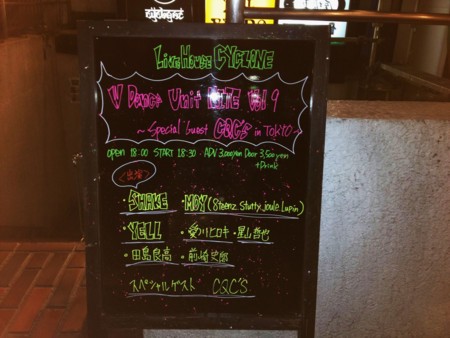 Live House CYCLONE
V Dance Unit NITE Vol 9
~Special guest CQC'S in TOKYO~
open 18:00 START 18:30 ADV 3,000yen Door 3,500yen
+Drink
<出演>
・SHAKE ・MDY (8teenz. Stutty. joule Lupin)
・YELL ・ ヒロキ ・ 哲也
・田島良高 ・前崎史郎
スペシャルゲスト CQC'S